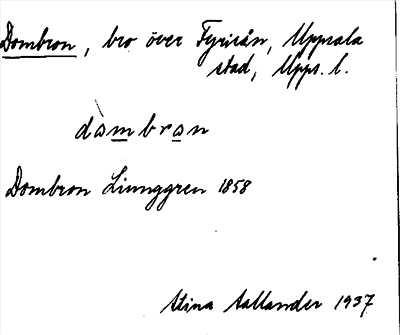 Dombron, bro över Fyrisån, Uppsala
stad, Upps. l.
dåmbrɷn
Dombron Liunggren 1858
Stina Aallander 1937